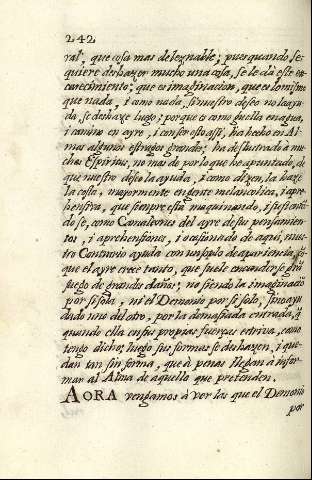 242
ral, que cosa mas deleznable; pues quando se
quiere deshazer mucho una cosa, se le dà este en-
carecimiento; que es imaginacion, que es lo mismo
que nada, i como nada, si nuestro deseo no lo ayu-
da, se deshaze luego; porque es como guella en agua,
i camino en ayre, i con ser esto assi, ha hecho en Al-
mas algunos estragos grandes; ha deslustrado à mu-
chos Espiritus, no mas de por lo que he apuntado, de
que nuestro deseo la ayuda, i como dizen, la haze
la costa, mayormente en gente melancolica, i apre-
hensiva, que siempre està maquinando, i sustentan-
dose, como Camaleones del ayre de sus pensamien-
tos, i aprehensiones, i ocasionado de aqui, nues-
tro Contrario ayuda con un soplo de apariencia,
que el ayre crece tanto, que suele encenderse gran
fuego de grandes daños; no siendo la imaginacio
por sì sola, ni el Demonio por sì solo, sino ayu-
dado uno del otro, por la demasiada entrada, q
quando ella en sus propias fuerças estriva, como
tengo dicho; luego sus formas se deshazen, i que-
dan tan sin forma, que à penas llegan à infor-
mar al Alma de aquello que pretenden.
AORA vengamos à ver las que el Demonio
por